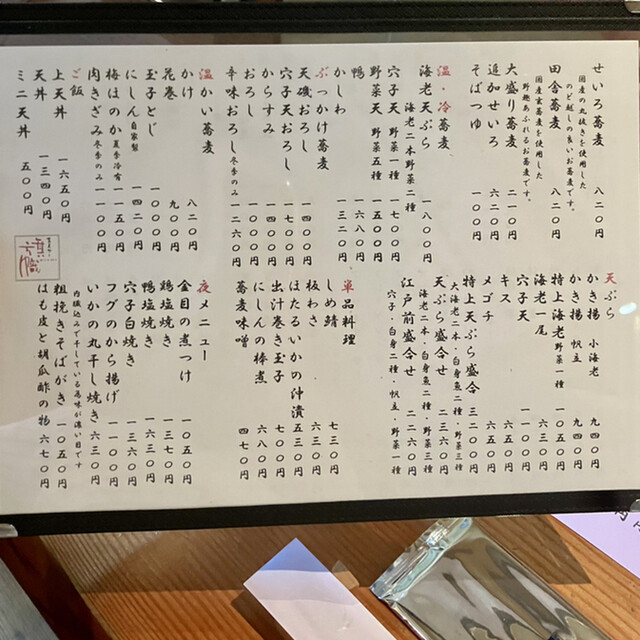 せいろ蕎麦 八二〇円
国産の丸抜きを使用した
のど越しの良いお蕎麦です。
田舎蕎麦 八二〇円
国産玄蕎麦を使用した
野趣あふれるお蕎麦です。
大盛り蕎麦 二一〇円
追加せいろ 六二〇円
そばつゆ 一〇〇円
温・冷蕎麦
海老天ぷら 一八〇〇円
海老二本野菜二種
穴子天 野菜一種 一七〇〇円
野菜天 野菜五種 一五〇〇円
鴨 一六八〇円
かしわ 一三二〇円
ぶっかけ蕎麦
天磯おろし 一四〇〇円
穴子天おろし 一七〇〇円
からすみ 一四〇〇円
おろし 一〇〇〇円
辛味おろし 冬季のみ 一二六〇円
温かい蕎麦
かけ 八二〇円
花巻 九〇〇円
玉子とじ 一〇〇〇円
にしん 自家製 一四二〇円
梅ほのか 夏季冷有 一一五〇円
肉きざみ 冬季のみ 一一〇〇円
ご飯
上天丼 一六五〇円
天丼 一三四〇円
ミニ天丼 五〇〇円
天ぷら
かき揚 小海老 九四〇円
かき揚 帆立 九四〇円
特上海老 野菜一種 一〇五〇円
海老一尾 六三〇円
穴子天 一〇五〇円
キス 六五〇円
メゴチ 六五〇円
特上天ぷら盛合 三二〇〇円
大海老二本・白身魚二種・野菜三種
天ぷら盛合せ 二三六〇円
海老二本・白身魚二種・野菜三種
江戸前盛合せ 二二六〇円
穴子・白身二種・帆立・野菜一種
単品料理
しめ鯖 七三〇円
板わさ 六三〇円
ほたるいかの沖漬 五三〇円
出汁巻き玉子 七〇〇円
にしんの棒煮 六八〇円
蕎麦味噌 四七〇円
夜メニュー
金目の煮つけ 一〇五〇円
鶏塩焼き 一三七〇円
鴨塩焼き 六三〇円
穴子白焼き 一三六〇円
フグのから揚げ 一一〇〇円
いかの丸干し焼き 六三〇円
内臓込みで干している為味が濃い目です
粗挽きそばがき 一〇五〇円
はも皮と胡瓜酢の物 六七〇円